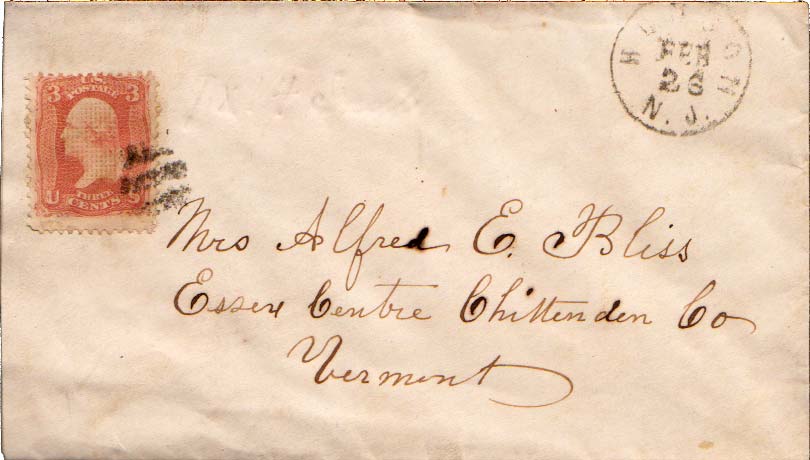 3 U.S. 3
POSTAGE
U THREE S
CENTS
HUDSON
FEB
26
N. J.
Mrs Alfred E. Bliss
Essex Centre Chittenden Co
Vermont